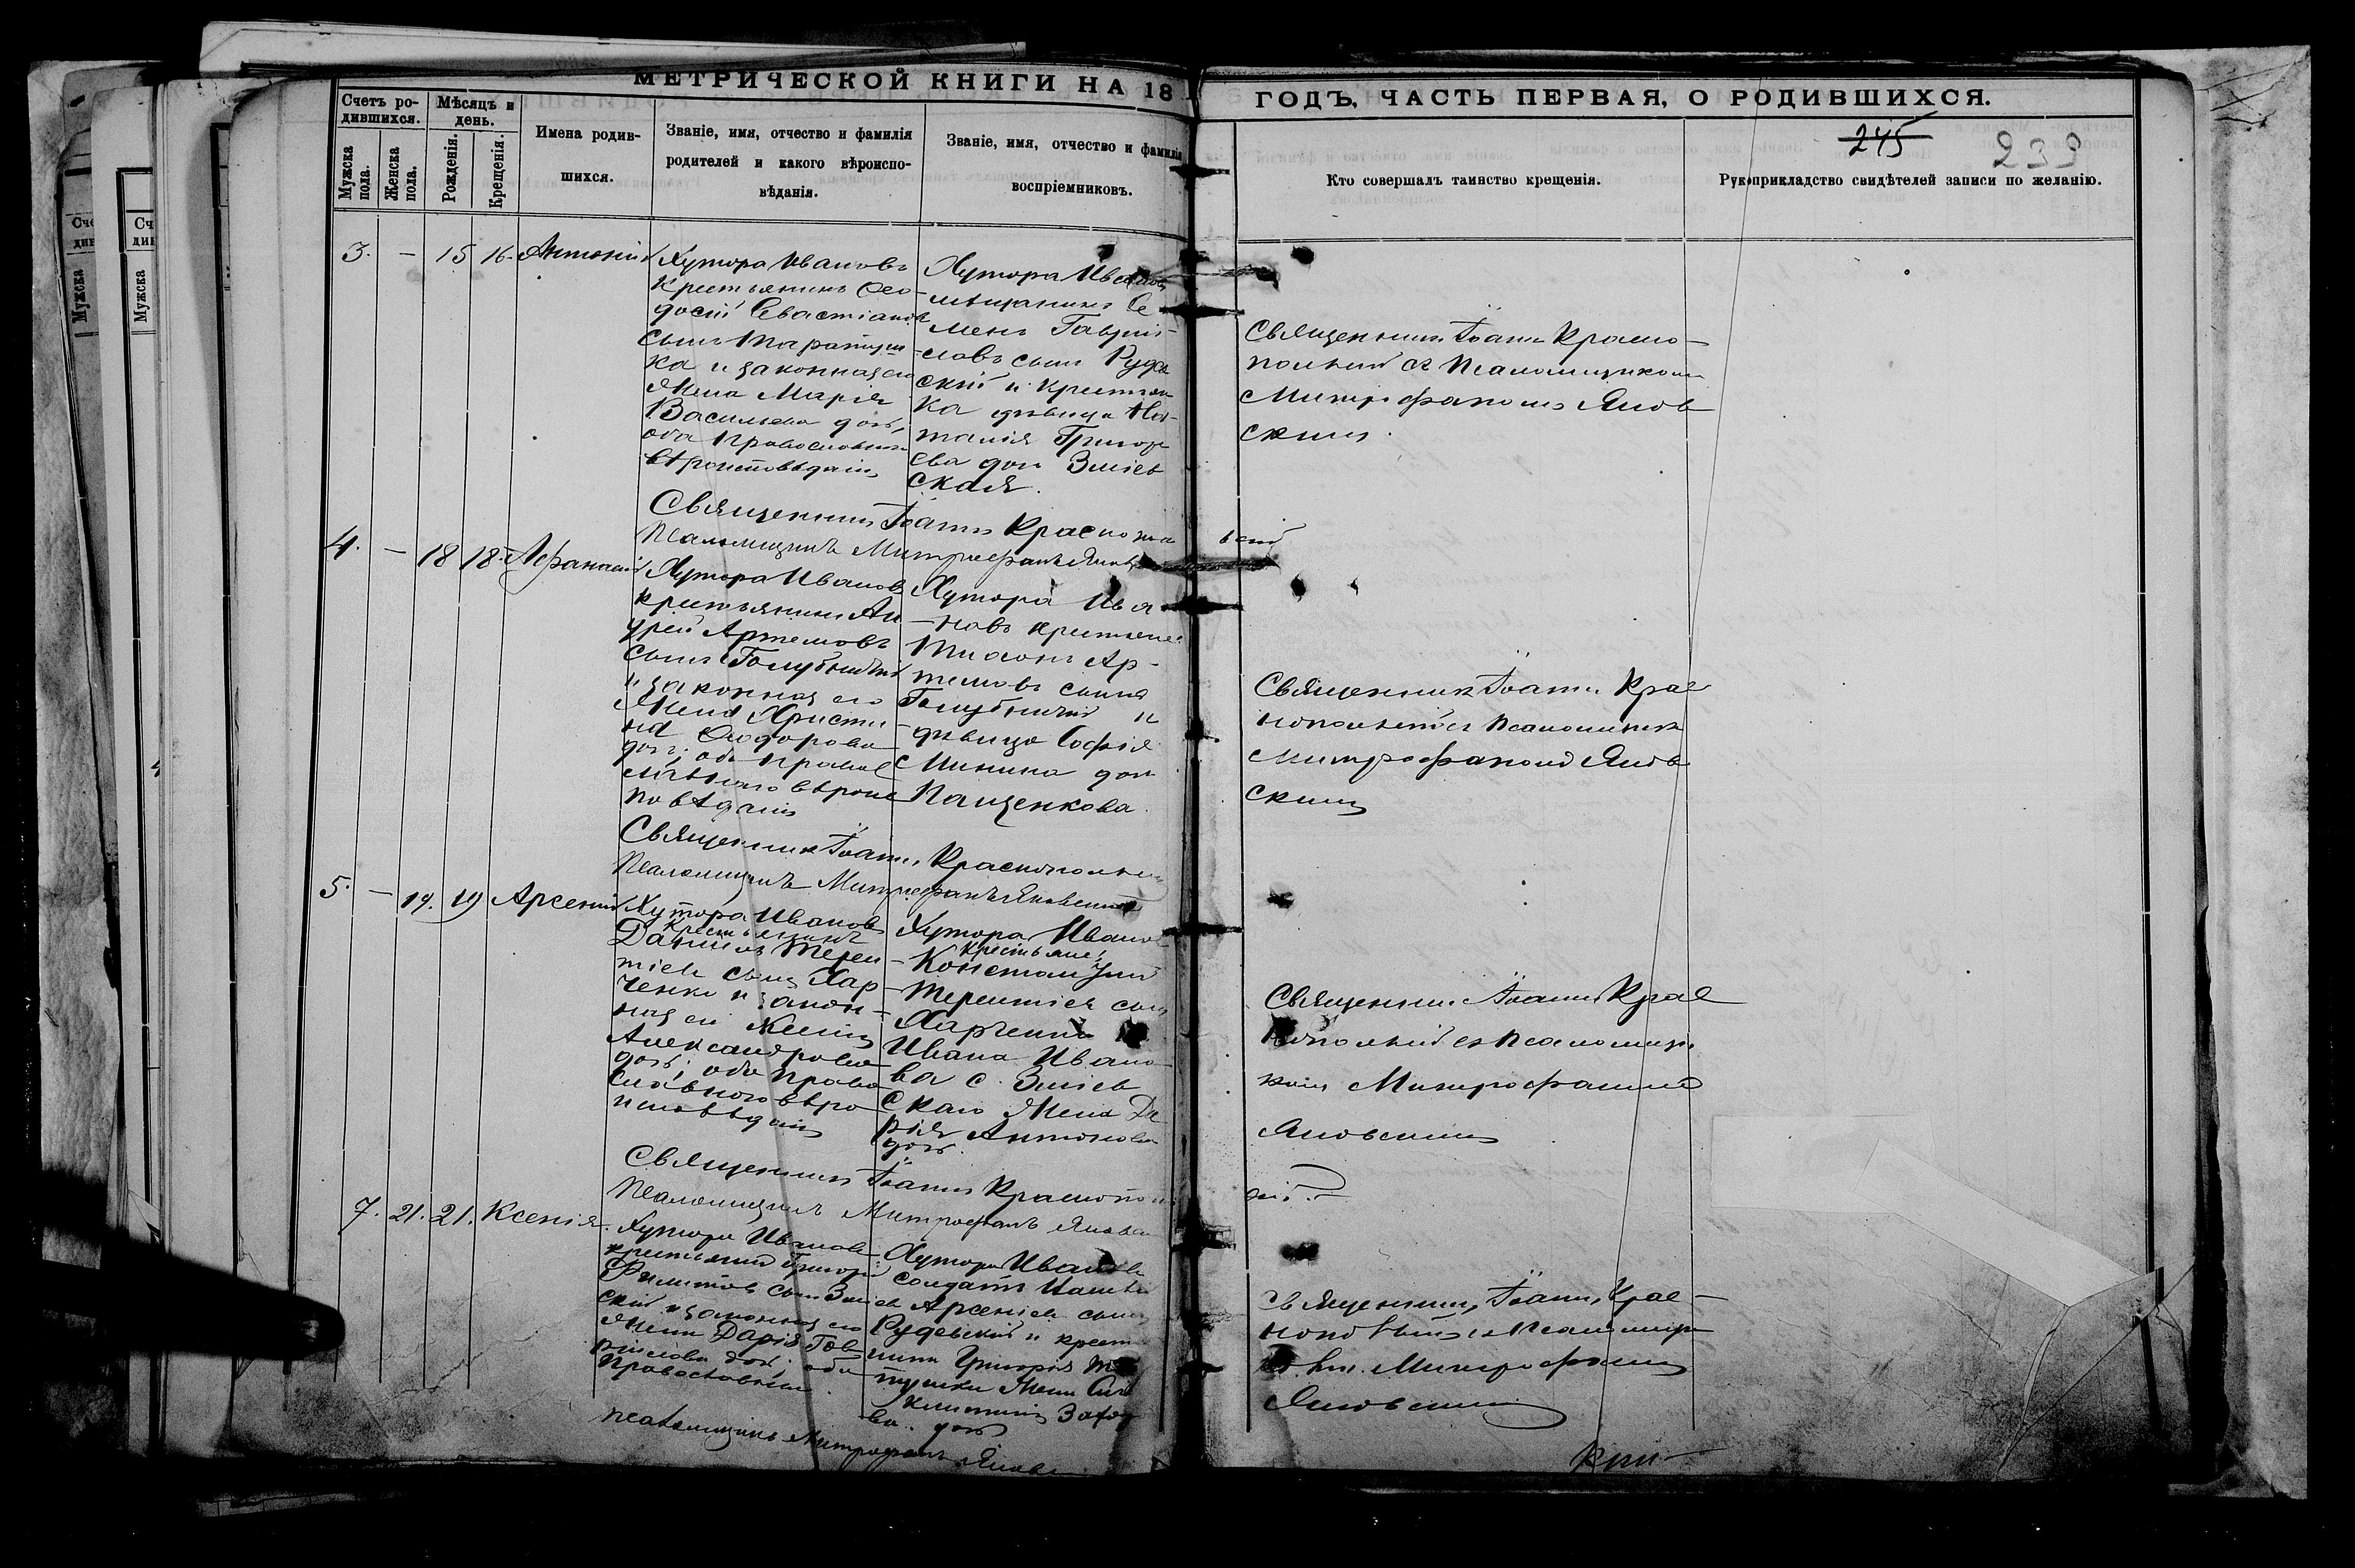 МЕТРИЧЕСКОЙ КНИГИ НА 18
ГОДЪ, ЧАСТЬ ПЕРВАЯ, О РОДИВШИХСЯ.
245
239
Счетъ ро-
дившихся.
Мужска
пола.
Женска
пола.
Мѣсяцъ и
день.
Рожденія.
Крещенія.
Имена родив-
шихся.
Званіе, имя, отчество и фамилія
родителей и какого вѣроиспо-
вѣданія.
Званіе, имя, отчество и фамилія
воспріемниковъ.
Кто совершалъ таинство крещенія.
Рукоприкладство свидѣтелей записи по желанію.
3. — 15 16. Антоній
Хутора Ивановъ
Крестьянинъ Ѳео-
досій Севастіановъ
сынъ
и законная его
Жена Марія
Васильева доч.
оба православнаго
вѣроисповѣданія
Хутора Иванов
мещанинъ Се
менъ Гаврі-
ловъ сынъ Рудев
скій и крестьян
ка дѣвица На-
талія Григорь
ева доч Зміев
ская.
Священникъ Іоаннъ Красно-
польскій съ Псаломщикомъ
Митрофаномъ Янов
скимъ.
Священникъ Іоаннъ Краснопольскій
Псаломщикъ Митрофанъ Яновскій
4. — 18 18. Афанасій
Хутора Иванов
крестьянинъ Ан
дрей Артемовъ
сынъ Голубничій
и законная его
Жена Христи
на Ѳеодорова
доч; оба правос
лавнаго вѣроис
повѣданія
Хутора Ива
новъ крестьяне:
Тихонъ Ар-
темовъ сынъ
Голубничій и
дѣвица Софія
Минина доч
Пащенкова.
Священникъ Іоаннъ Крас
нопольскій съ Псаломщик
Митрофаномъ Янов
скимъ
Священникъ Іоаннъ Краснопольскій
Псаломщикъ Митрофанъ Яновскій
5. — 19. 19 Арсеній
Хутора Иванов
Крестьянинъ
Даніилъ Терен
тіевъ сынъ Хар
ченко и закон-
ная его Жена
Александрова
доч; оба право
славнаго вѣро
исповѣданія
Хутора Иванов
Крестьяне:
Терентіевъ сын
Харченко
Ивана Ивано
ва с. Зміев
скаго Жена Да
рія Антонова
доч.
Священникъ Іоаннъ Крас
нопольскій съ Псаломщи
комъ Митрофаномъ
Яновскимъ
Священникъ Іоаннъ Краснополь
Псаломщикъ Митрофанъ Яновскій
7. 21. 21. Ксенія.
Хутора Иванов
крестьянинъ Григорій
Филиппов сынъ Зміев
скій и законная его
Жена Дарія Гав
рилова доч. оба
Православнаго.
Хутора Иванов
солдатъ
Арсеніевъ сынъ
Рудевскій и крест
Григорія
Жена
доч
Священникъ Іоаннъ Крас-
нопольскій съ Псаломщи
комъ Митрофаномъ
Яновскимъ
Псаломщикъ Митрофанъ Яновск